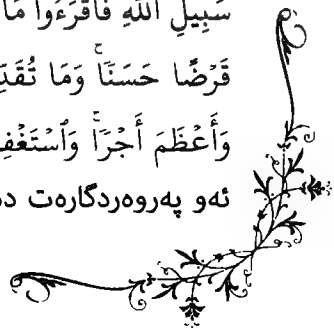 سَبِيلِ ٱللَّهِ فَٱقْرَءُوا۟ مَا
قَرْضًا حَسَنًا ۚ وَمَا
وَأَعْظَمَ أَجْرًا ۚ
ئەو پەروەردگارەت